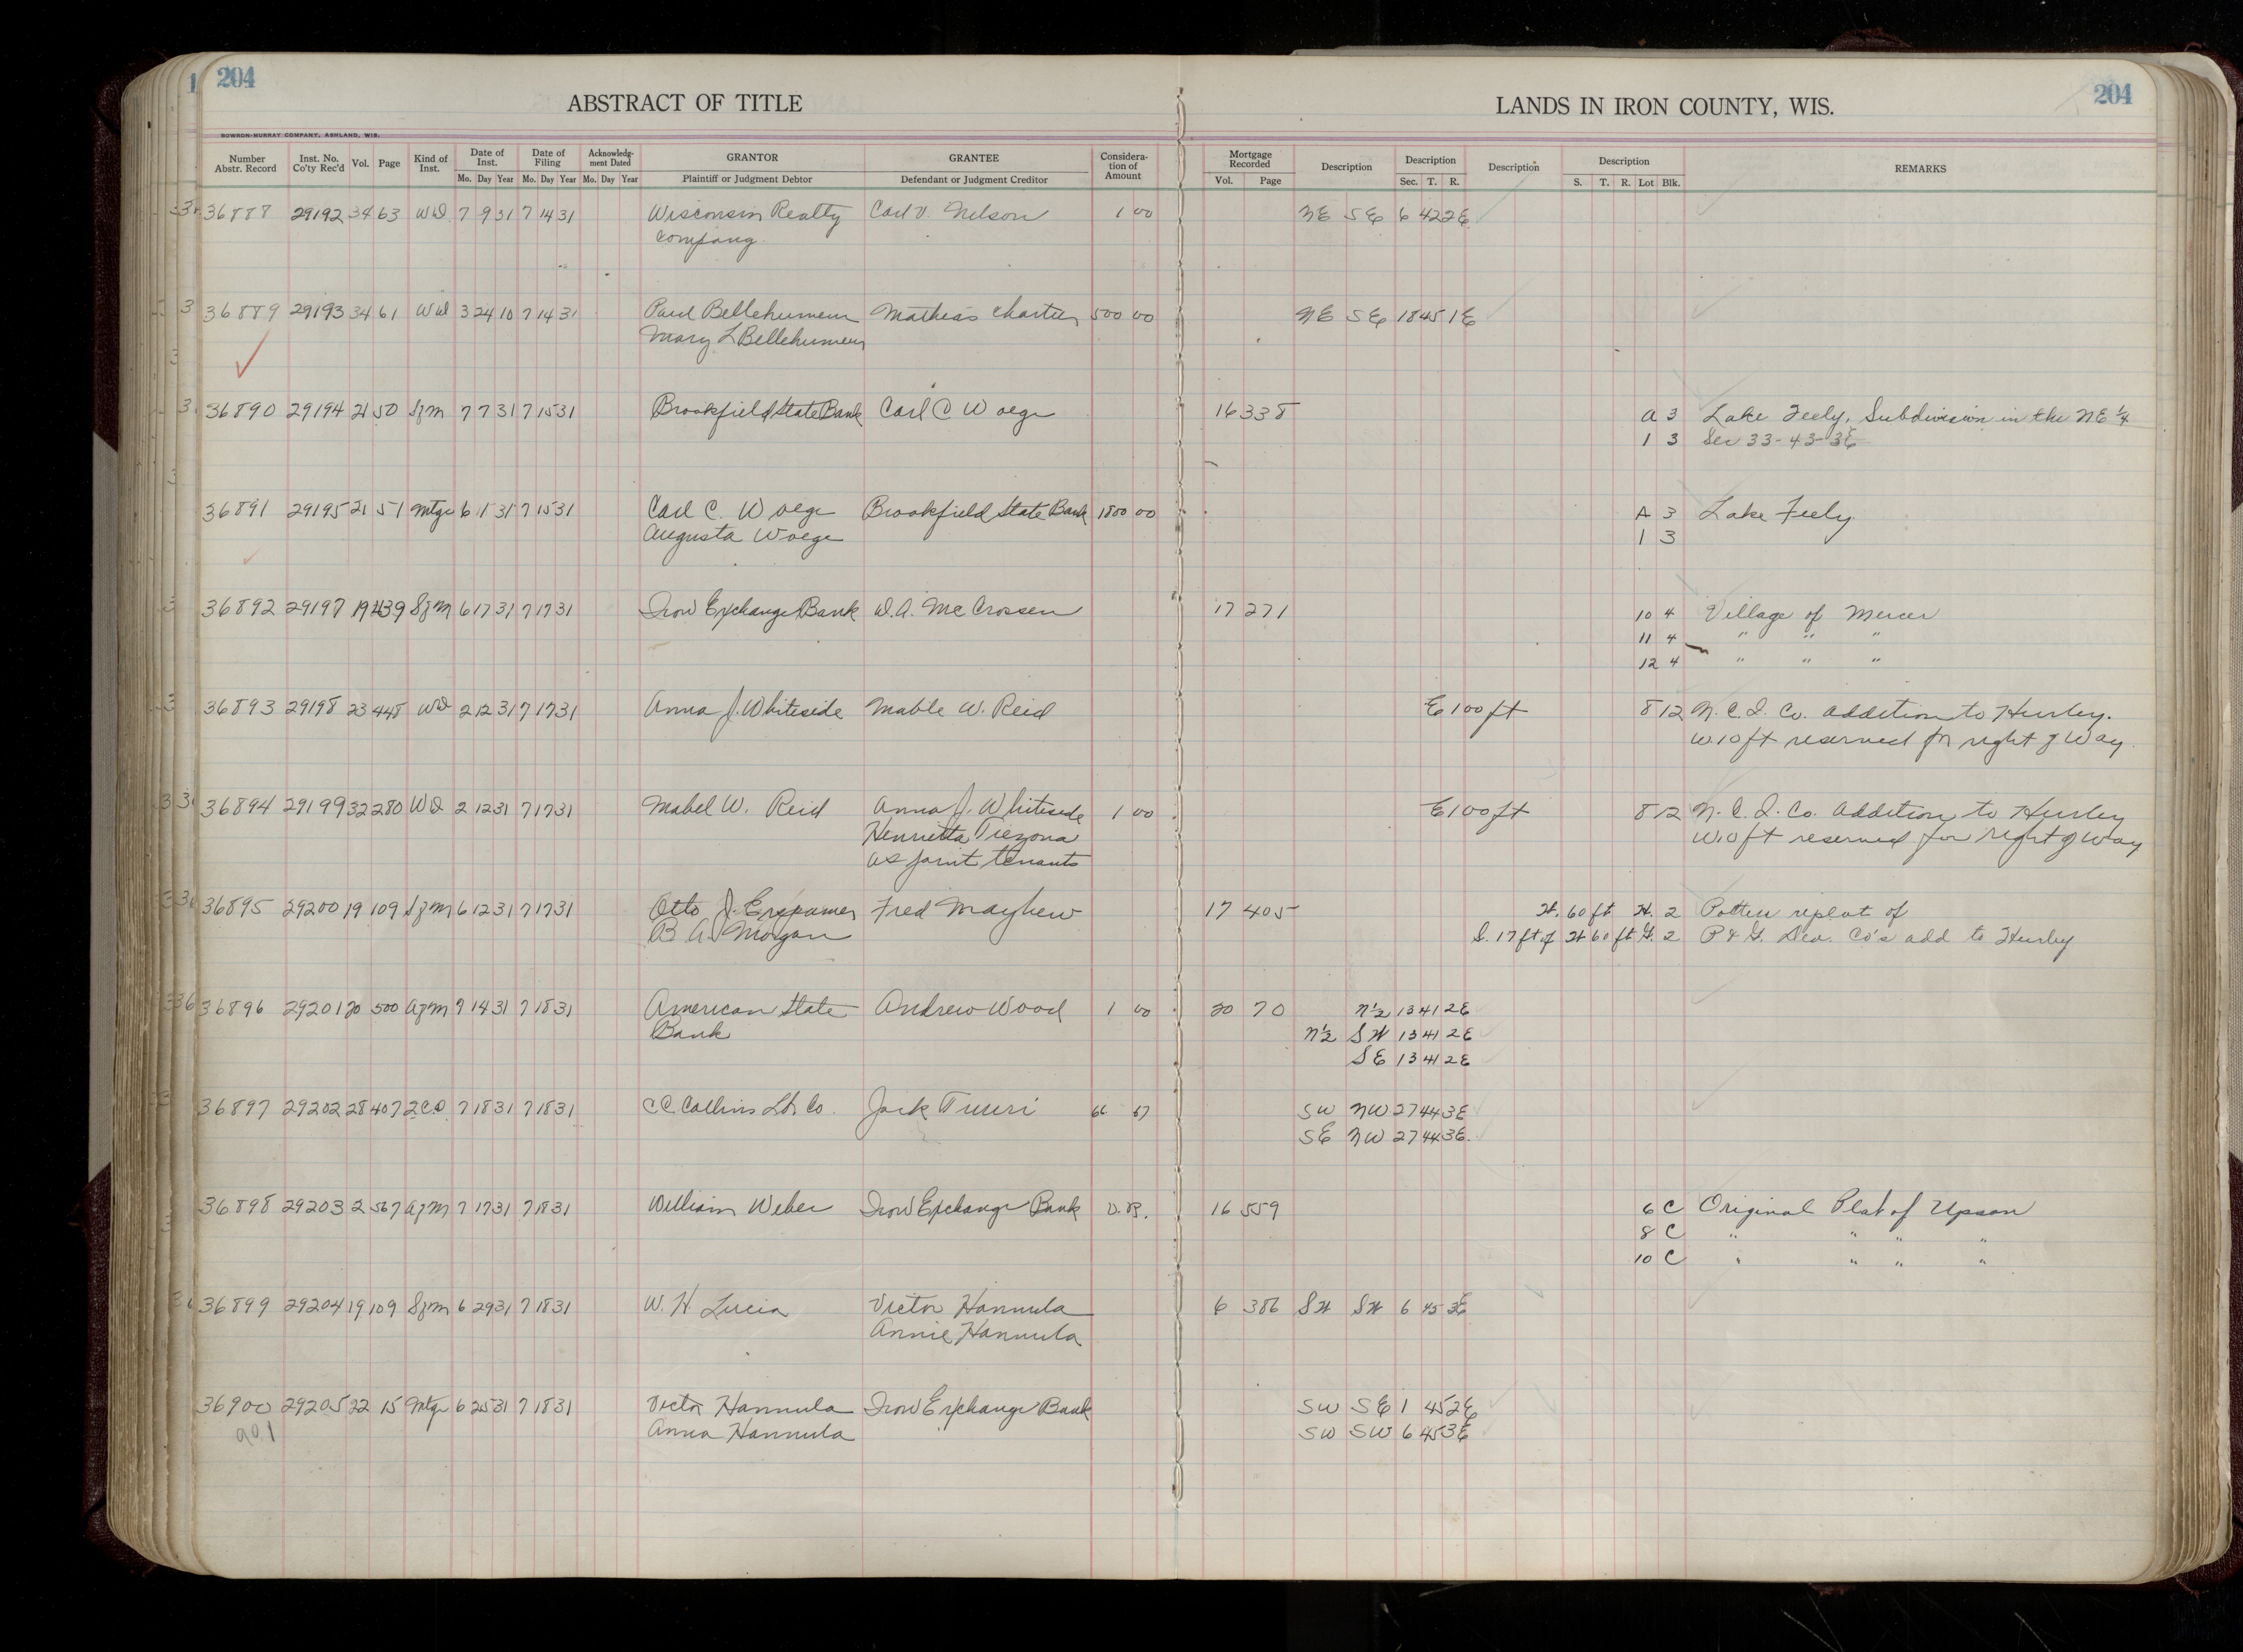 204
204
ABSTRACT OF TITLE
LANDS IN IRON COUNTY, WIS.
BOWRON-MURRAY COMPANY, ASHLAND, WIS.
Number Abstr. Record Inst. No. Co'ty Rec'd Vol. Page Kind of Inst. Date of Inst. Mo. Day Year Date of Filing Mo. Day Year Acknowledg-ment Dated Mo. Day Year GRANTOR Plaintiff or Judgment Debtor GRANTEE Defendant or Judgment Creditor Considera-tion of Amount Mortgage Recorded Vol. Page Description Description Sec. T. R. Description Description S. T. R. Lot Blk. REMARKS
36888 29192 34 63 WD 7 9 31 7 14 31 Wisconsin Realty Carl V. Nelson 1 00 NE SE 6 42 2E
Company.
36889 29193 34 61 WD 3 24 10 7 14 31 Paul Bellehumeur Mathias Chartier 500 00 NE SE 18 45 1E
Mary L Bellehumeur
36890 29194 21 50 Szm 7 7 31 7 15 31 Brookfield State Bank Carl C Woege 16 338 A 3 Lake Feely, Subdivision in the NE 1/4
1 3 Sec 33-43-3E
36891 29195 21 51 Mtge 6 1 31 7 15 31 Carl C. Woege Brookfield State Bank 1800 00 A 3 Lake Feely
Augusta Woege 1 3
36892 29197 19 439 Szm 6 17 31 7 17 31 Iron Exchange Bank D.A. McCrossen 17 271 10 4 Village of Mercer
11 4 " " "
12 4 " " "
36893 29198 23 448 WD 2 12 31 7 17 31 Anna J. Whiteside Mable W. Reid E 100 ft 8 12 N. C. I. Co. Addition to Hurley.
W.10 ft reserved for right of Way.
36894 29199 32 280 WD 2 12 31 7 17 31 Mabel W. Reid Anna J. Whiteside 1 00 E 100 ft 8 12 N. C. I. Co. Addition to Hurley
Henrietta Trezona W.10 ft reserved for right of Way
as joint tenants
36895 29200 19 109 Szm 6 12 31 7 17 31 Otto J. Erspamer Fred Mayhew 17 405 W. 60 ft H. 2 Potten replat of
B. A. Morgan S. 17 ft of W 60 ft G. 2 P & G. Dev. Co's add to Hurley
36896 29201 20 500 Azm 7 14 31 7 18 31 American State Andrew Wood 1 00 20 70 N½ 13 41 2E
Bank N½ SW 13 41 2E
SE 13 41 2E
36897 29202 28 407 2CD 7 18 31 7 18 31 C C Collins Lbr Co. Jack Tuuri 66 67 SW NW 27 44 3E
SE NW 27 44 3E.
36898 29203 2 567 Azm 7 17 31 7 18 31 William Weber Iron Exchange Bank 16 559 6 C Original Plat of Upson
8 C " " " "
10 C " " " "
36899 29204 19 109 Szm 6 29 31 7 18 31 W. H. Lucia Victor Hannula 6 386 SW SW 6 45 3E
Annie Hannula
36900 29205 22 15 Mtge 6 25 31 7 18 31 Victor Hannula Iron Exchange Bank SW SE 1 45 2E
901 Anna Hannula SW SW 6 45 3E